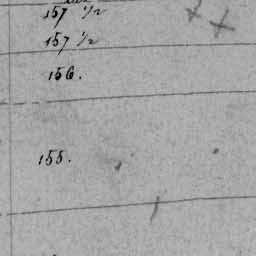 157 1/2
157 1/2
156.
155.